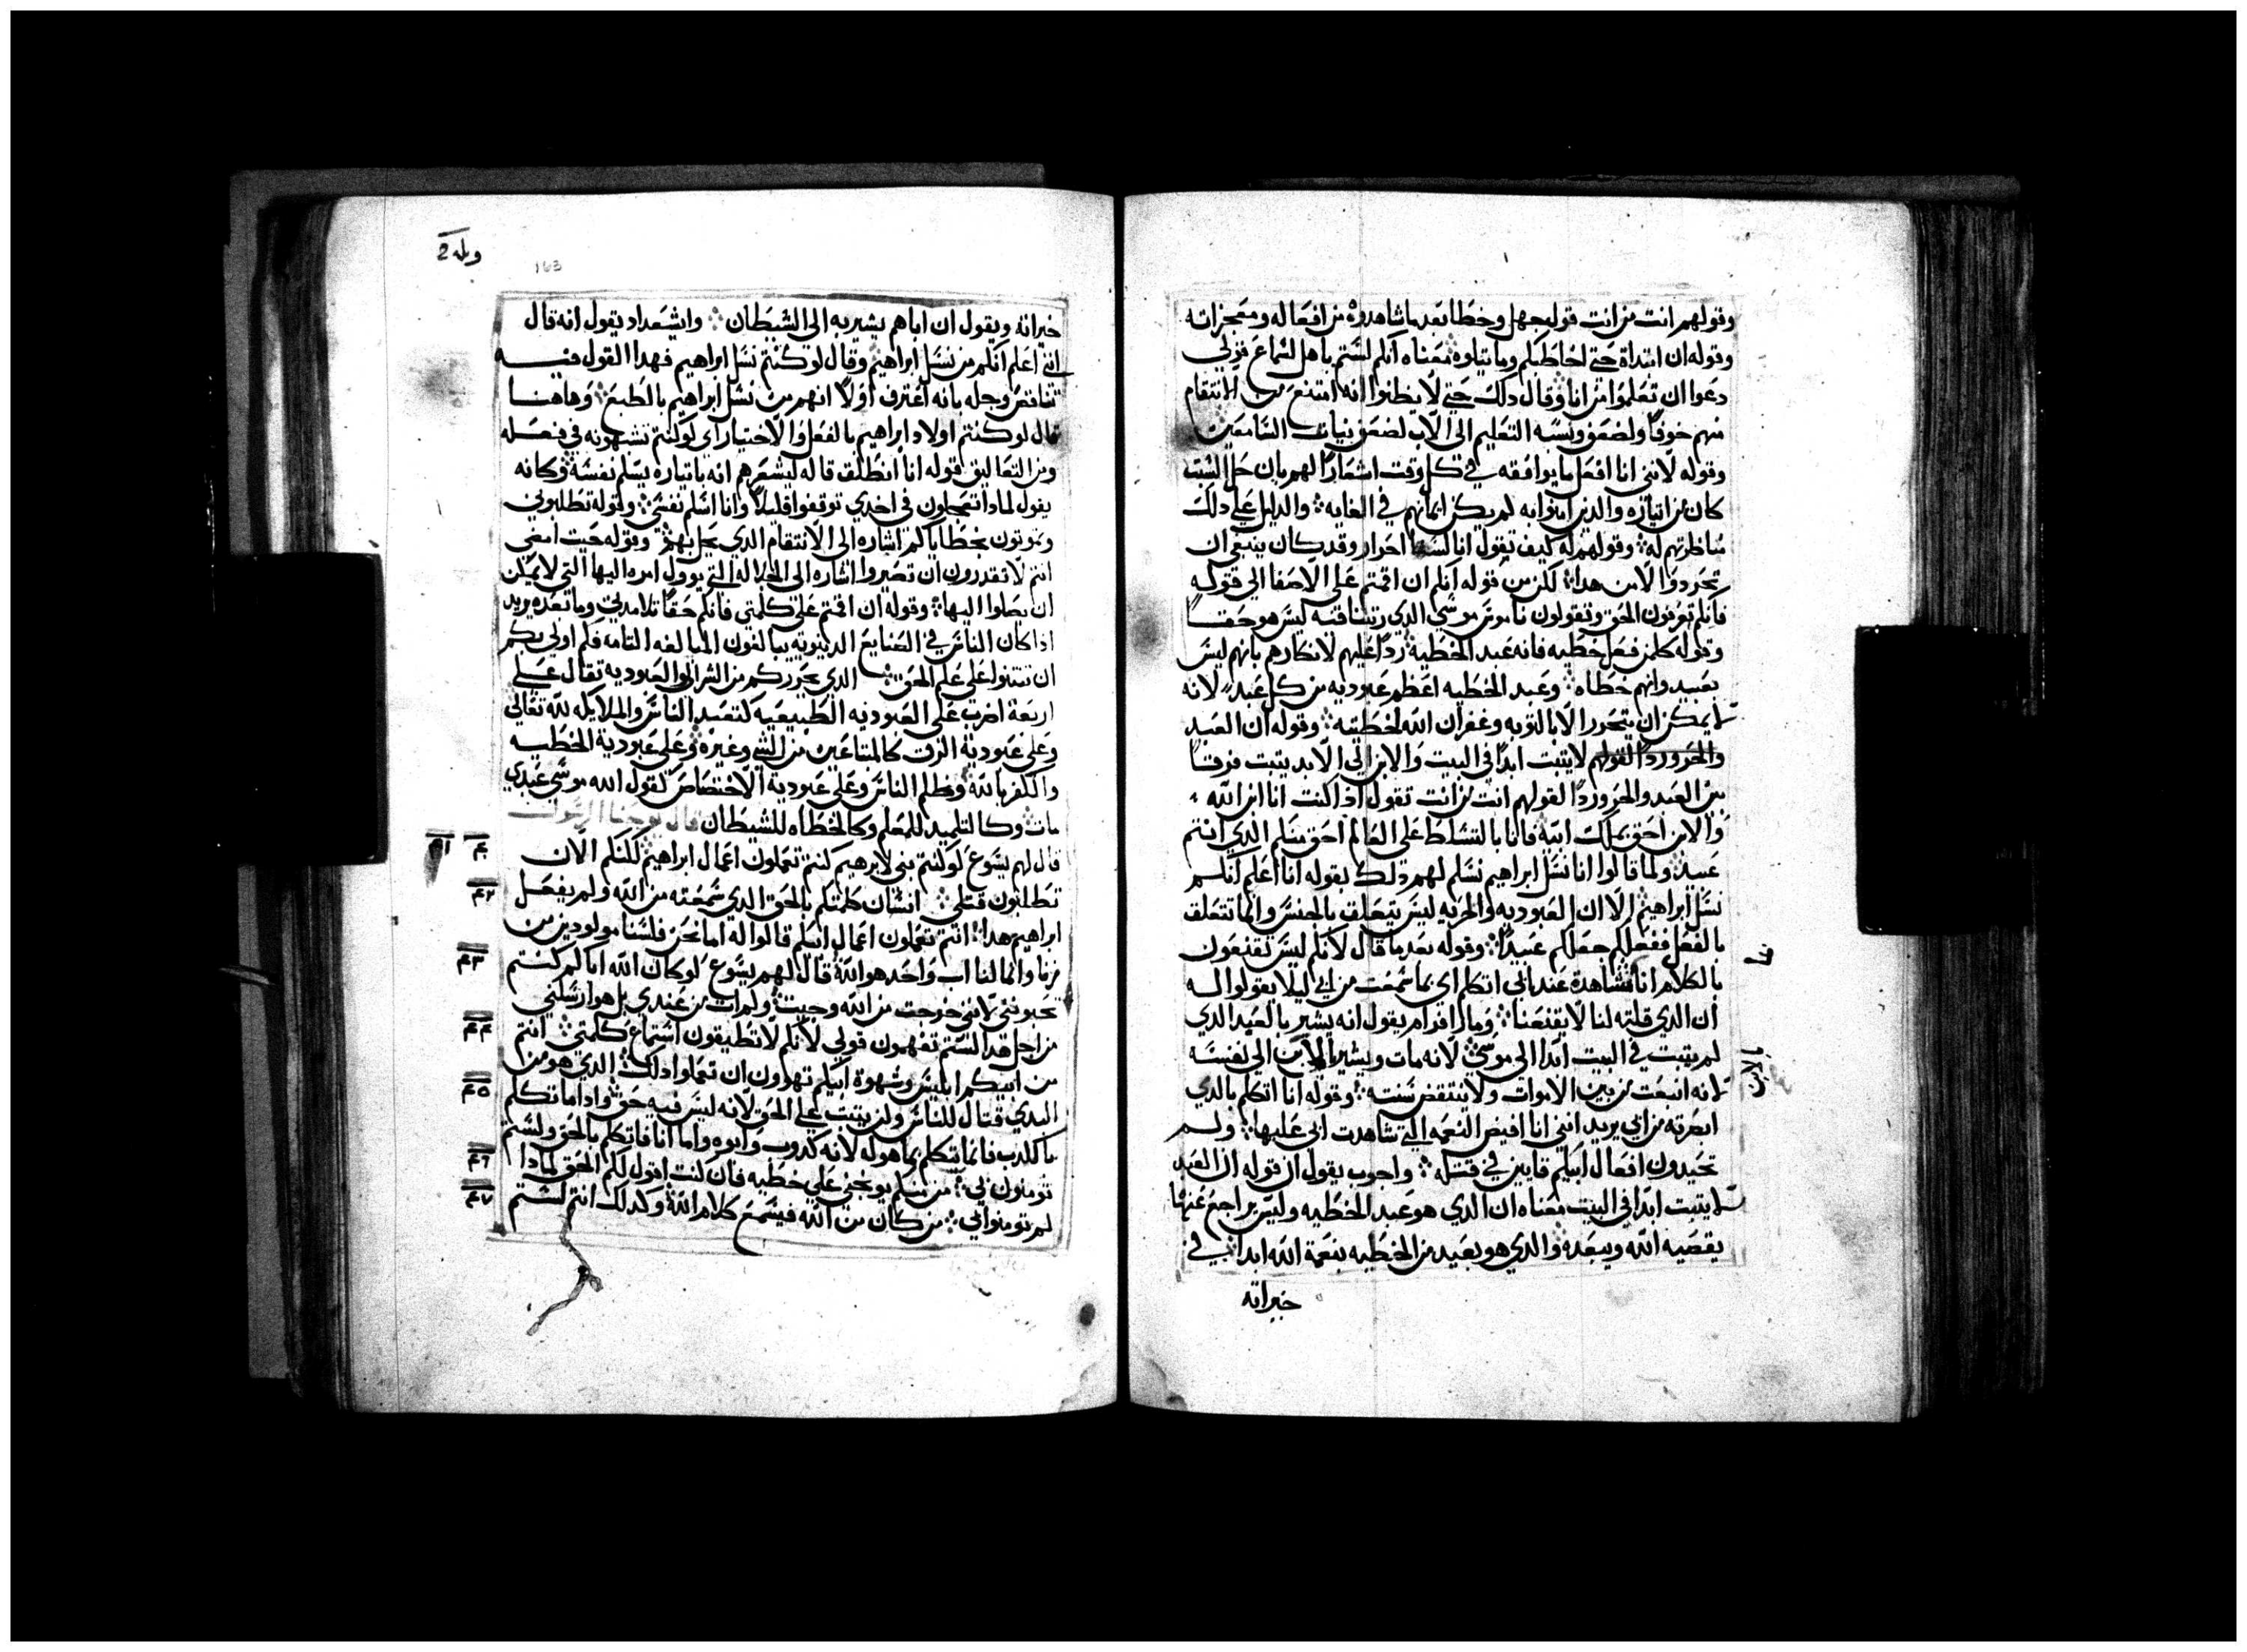 وقولهم انت من انت قول جهل وخطا بعد ما شاهدوه من افعاله ومعجزاته
وقوله ان ابتداة حتي اخاطبكم وما يتلوه معناه انكم لستم باهل لسماع قولي
دعوا ان تعلموا من انا وقال دلك حتي لا يظنوا انه امتنع من الانتقام
منهم خوفا ولضعف ونسبه التعليم الى الاب لضعف نيات السامعين
وقوله لانني انا افعل ما يوافقه في كل وقت اشعارا لهم بان حل السبت
كان من ايثاره والدين امنوا به لم يكن ايمانهم في الغايه والدليل على دلك
مناظرتهم له وقولهم له كيف تقول انا لسنا احرار وقد كان ينبغي ان
تحرروا الامن هدا لكن من قوله انكم ان اقمتم على الاصفا الى قوله
فانكم تعرفون الحق وتقولون ناموس موسى الدي ليس هو حقا
وقوله كلمن فعل خطيه فانه عبد الخطيه ردا عليهم لانكارهم بانهم ليس
بعبيد وانهم خطاه وعبد الخطيه اعظم عبوديه من كل عبد لانه
لا يمكن ان يتحرر الا بالتوبه وغفران الله لخطيته وقوله ان العبد
والحر وردا لقولهم لا يثبت ابدا في البيت والابن الى الابد يثبت فرقا
بين العبد والحر وردا لقولهم انت من انت تقول ادا كنت انا ابن الله
والابن احق بملك ابيه فانا بالتسلط على العالم احق منكم الدي انتم
عبيد ولما قالوا انا نسل ابراهيم نسلم لهم دلك بقوله انا اعلم انكم
نسل ابراهيم الا ان العبوديه والحريه ليس تتعلق بالجنس وانما تتعلق
بالفعل ففعلكم جعلكم عبيدا وقوله بعد ما قال لانكم ليس تقنعون
بالكلام انا مشاهدة عند ابي اتكلم اي بما سمعت من ابي ليلا يقولوا له
ان الدي قلته لنا لا يقنعنا ومار افرام يقول انه يشير بالعبد الدي
لم يثبت في البيت ابدا الى موسى لانه مات ويشير بالابن الى نفسه
لانه انبعث من بين الاموات ولا تنتقض سنته وقوله انا اتكلم بالدي
ابصرته من ابي يريد انني انا افيض النعمه التي شاهدت ابي عليها ولم
تحيدون افعال ابيكم قايين في قتله واخرون يقول ان قوله ان العبد
لا يثبت ابدا في البيت معناه ان الدي هو عبد الخطيه وليس يراجع عنها
يقصيه الله ويبعده والدي هو بعيد من الخطيه بنعمة الله ابدا في
خيراته
163
خيراته ويقول ان اباهم يشير به الى الشيطان وايشعداد يقول انه قال
اني اعلم انكم من نسل ابراهيم وقال لو كنتم نسل ابراهيم فهدا القول فيه
تناقض وحله بانه اعترف اولا انهم من نسل ابراهيم بالطبع وهاهنا
قال لو كنتم اولاد ابراهيم بالفعل والاختيار اي لو كنتم تشبهونه في فعله
ومن التعاليق قوله انا انطلق قاله ليشعرهم انه باتياره يسلم نفسه وكانه
يقول لمادا تعجلون في اخدي توقفوا قليلا وانا اسلم نفسي وقوله تطلبوني
وتموتون بخطاياكم اشاره الى الانتقام الدي يحل بهم وقوله حيت امضي
انتم لا تقدرون ان تصيروا اشاره الى الجلاله التي يوول امره اليها التي لا يمكن
ان يصلوا اليها وقوله ان اقمتم على كلمتي فانكم حقا تلامدتي وما بعده يريد
ادا كان الناس في الصنايع الدنيويه يبالغون المبالغه التامه فكم اولى بكم
ان تثبتوا على علم الحق الدي يحرركم من الشر العبوديه تقال على
اربعة اضرب على العبوديه الطبيعيه كتعبد الناس والملايكه لله تعالى
وعلى عبودية الرق كالمتباعين من السبي وغيره وعلى عبودية الخطيه
والكفر بالله وظلم الناس وعلى عبودية الاختصاص كقول الله موسى عبدي
مات وكالتلميد للمعلم وكالخطاه للشيطان قال يوحنا الرسول
قال لهم يسوع لو كنتم بني لابرهيم كنتم تعملون اعمال ابراهيم لكنكم الان
تطلبون قتلي انسان كلمتكم بالحق الدي سمعته من الله ولم يفعل
ابراهيم هدا انتم تعملون اعمال ابيكم قالوا له اما نحن فلسنا مولودين من
زنا وانما لنا اب واحد هو الله قال لهم يسوع لو كان الله اباكم كنتم
تحبونني لانني خرجت من الله وجيت ولم ات من عندي بل هو ارسلني
من اجل هدا لستم تفهمون قولي لانكم لا تطيقون استماع كلمتي انتم
من ابيكم ابليس وشهوة ابيكم تهوون ان تعملوا دلك الدي هو من
البدي قتال للناس ولن يثبت على الحق لانه ليس فيه حق وادا ما تكلم
بالكدب فانما يتكلم بما هو له لانه كدوب وابوه واما انا فاتكلم بالحق ولستم
تومنون بي من منكم يوبخني على خطيه فان كنت اقول لكم الحق لمادا
لم تومنوا بي من كان من الله فيسمع كلام الله وكدلك انتم لستم